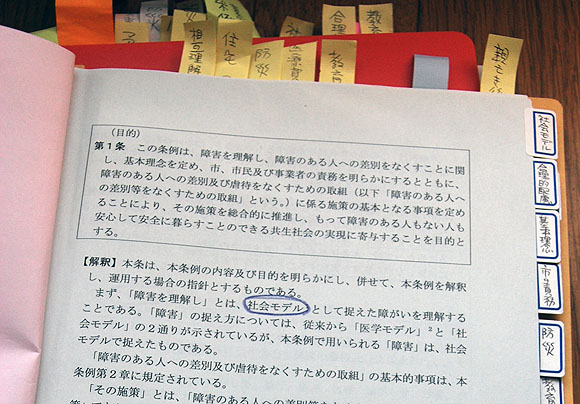 相互理解
住宅
防災
教育
合理
教育
親亡き後
(目的)
第1条 この条例は、障害を理解し、障害のある人への差別をなくすことに関
し、基本理念を定め、市、市民及び事業者の責務を明らかにするとともに、
障害のある人への差別及び虐待をなくすための取組(以下「障害のある人へ
の差別等をなくすための取組」という。)に係る施策の基本となる事項を定め
ることにより、その施策を総合的に推進し、もって障害のある人もない人も
安心して安全に暮らすことのできる共生社会の実現に寄与することを目的と
する。
【解釈】本条は、本条例の内容及び目的を明らかにし、併せて、本条例を解釈
し、運用する場合の指針とするものである。
まず、「障害を理解し」とは、社会モデルとして捉えた障がいを理解する
ことである。「障害」の捉え方については、従来から「医学モデル」2と「社
会モデル」の2通りが示されているが、本条例で用いられる「障害」は、社会
モデルで捉えたものである。
「障害のある人への差別及び虐待をなくすための取組」の基本的事項は、本
条例第2章に規定されている。
「その施策」とは、「障害のある人への差別等をなくすため
社会モデル
合理的配慮
基本理念
市の責務
防災